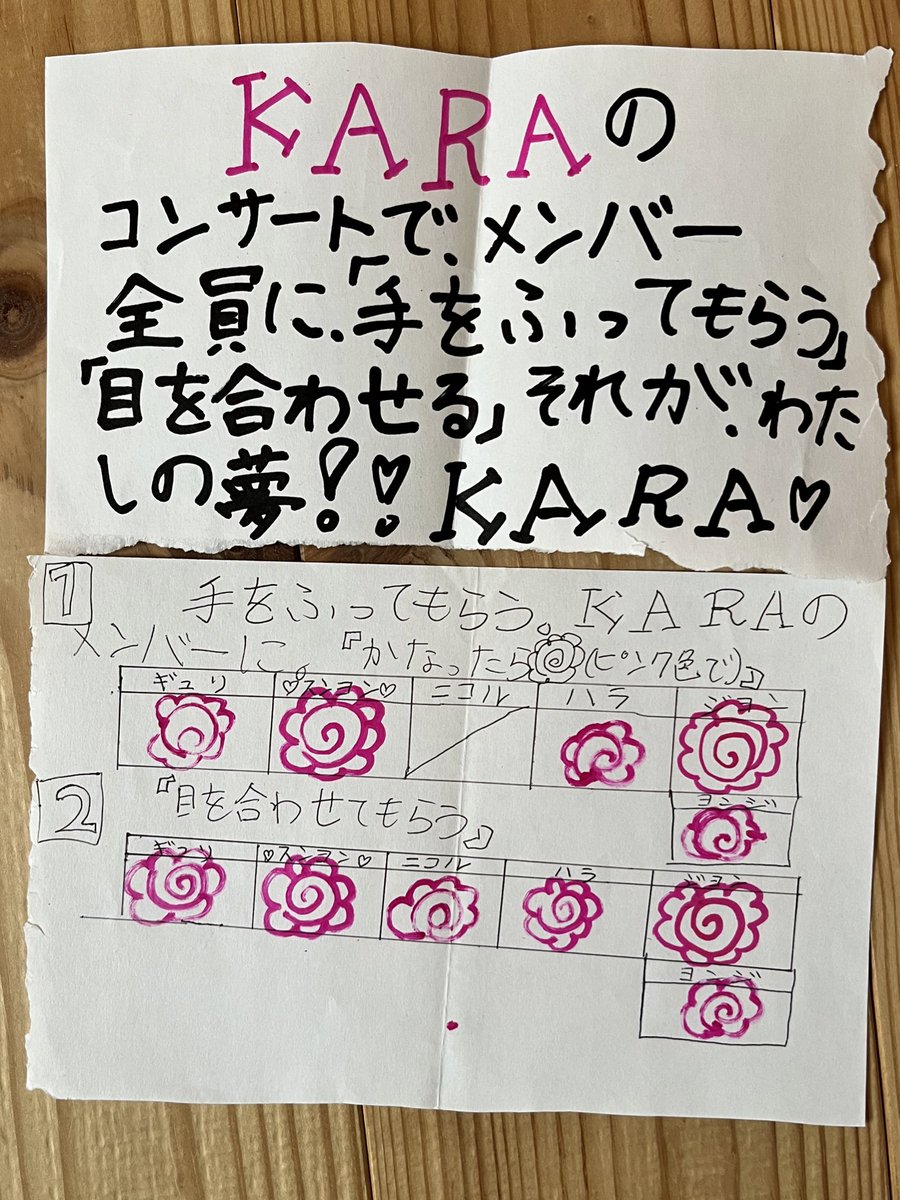 KARAの
コンサートで、メンバー
全員に、「手をふってもらう」
「目を合わせる」それが、わた
しの夢!♡ KARA♡
1 手をふってもらう。KARAの
メンバーに。『かなったら(ピンク色で)』
ギュリ ♡スンヨン♡ ニコル ハラ ジヨン
ヨンジ
2 『目を合わせてもらう』
ギュリ ♡スンヨン♡ ニコル ハラ ジヨン
ヨンジ